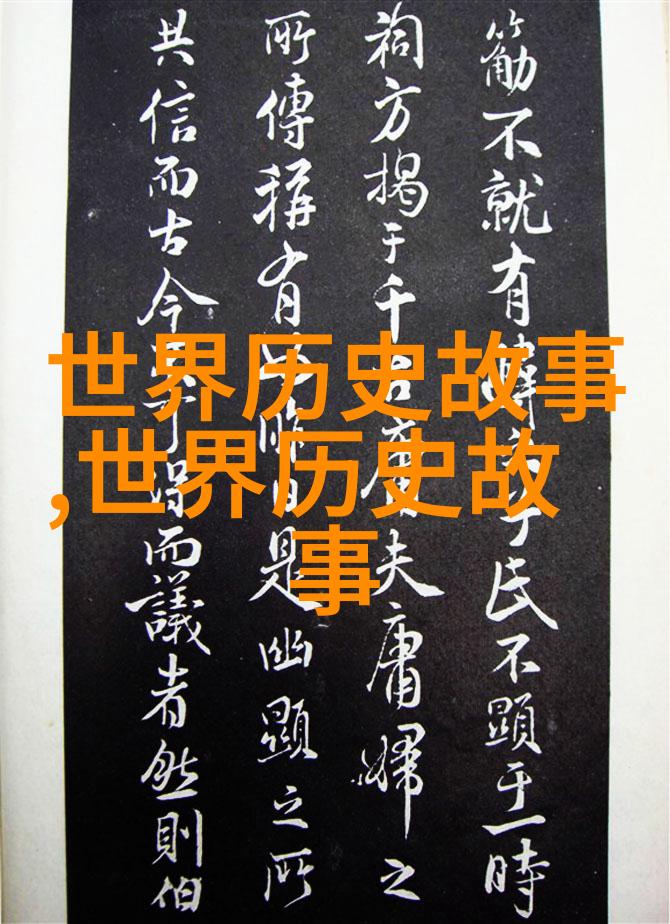 世界历史故事
,世界历史故
事
觔不就有韓之于民不顯于一時
祠方揭于千古庸夫庸婦之
所傳稱有如昨日是幽顯之所
共信而古今得而議者然則伯